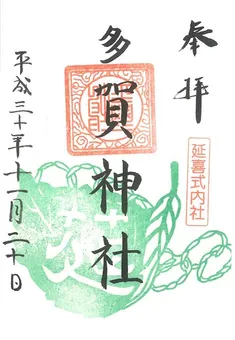 奉拝
延喜式内社
多賀神社
平成三十年十一月二十日